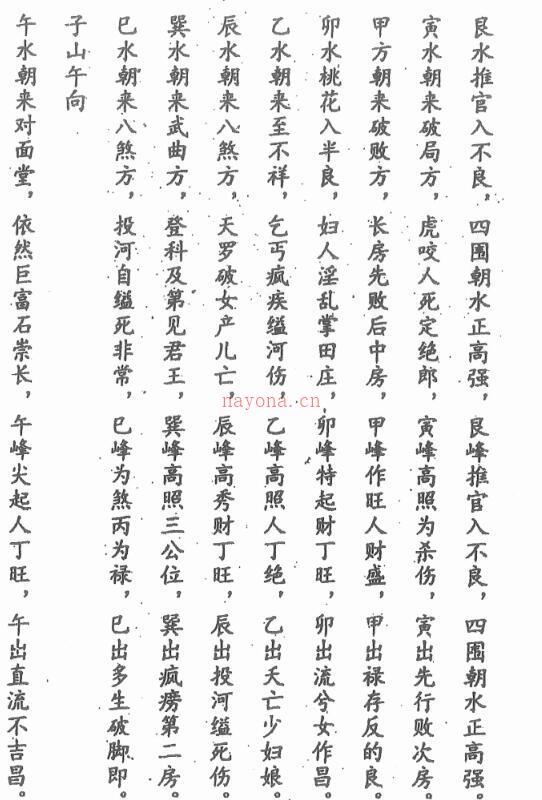 艮水推官入不良，四围朝水正高强，艮峰推官入不良，四围朝水正高强。
寅水朝来破局方，虎咬人死定绝郎，寅峰高照为杀伤，寅出先行败次房。
甲方朝来破败方，长房先败后中房，甲峰作旺人财盛，甲出禄存反的良。
卯水桃花入半良，妇人淫乱掌田庄，卯峰特起财丁旺，卯出流兮女作昌。
乙水朝来至不祥，乞丐疯疾缢河伤，乙峰高照人丁绝，乙出夭亡少妇娘。
辰水朝来八煞方，天罗破女产儿亡，辰峰高秀财丁旺，辰出投河缢死伤。
巽水朝来武曲方，登科及第见君王，巽峰高照三公位，巽出疯痨第二房。
巳水朝来八煞方，投河自缢死非常，巳峰为煞丙为禄，巳出多生破脚即。
子山午向
午水朝来对面堂，依然巨富石崇长，午峰尖起人丁旺，午出直流不吉昌。
nayona.cn